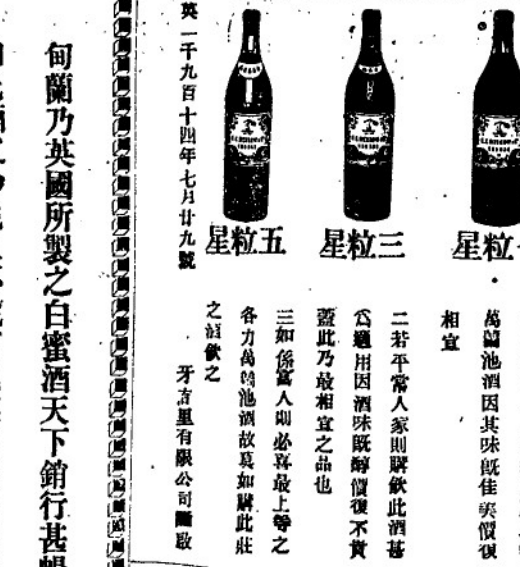 粒星
三粒星
五粒星
萬蘭池酒因其味既佳美價復
相宜
二若平常人家則購飲此酒甚
爲適用因酒味既醇價復不貴
蓋此乃最相宜之品也
三如係富人則必喜最上等之
各力萬蘭池酒故莫如購此壯
之酒飲之
牙吉里有限公司謹啟
英一千九百十四年七月廿九號
甸蘭乃英國所製之白蜜酒天下銷行甚暢